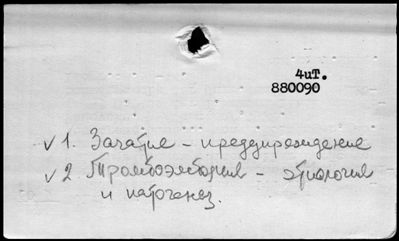 4иТ.
880090
✓ 1. Зачатие – предупреждение
✓ 2. Тромбоэмболия – этиология
и патогенез.